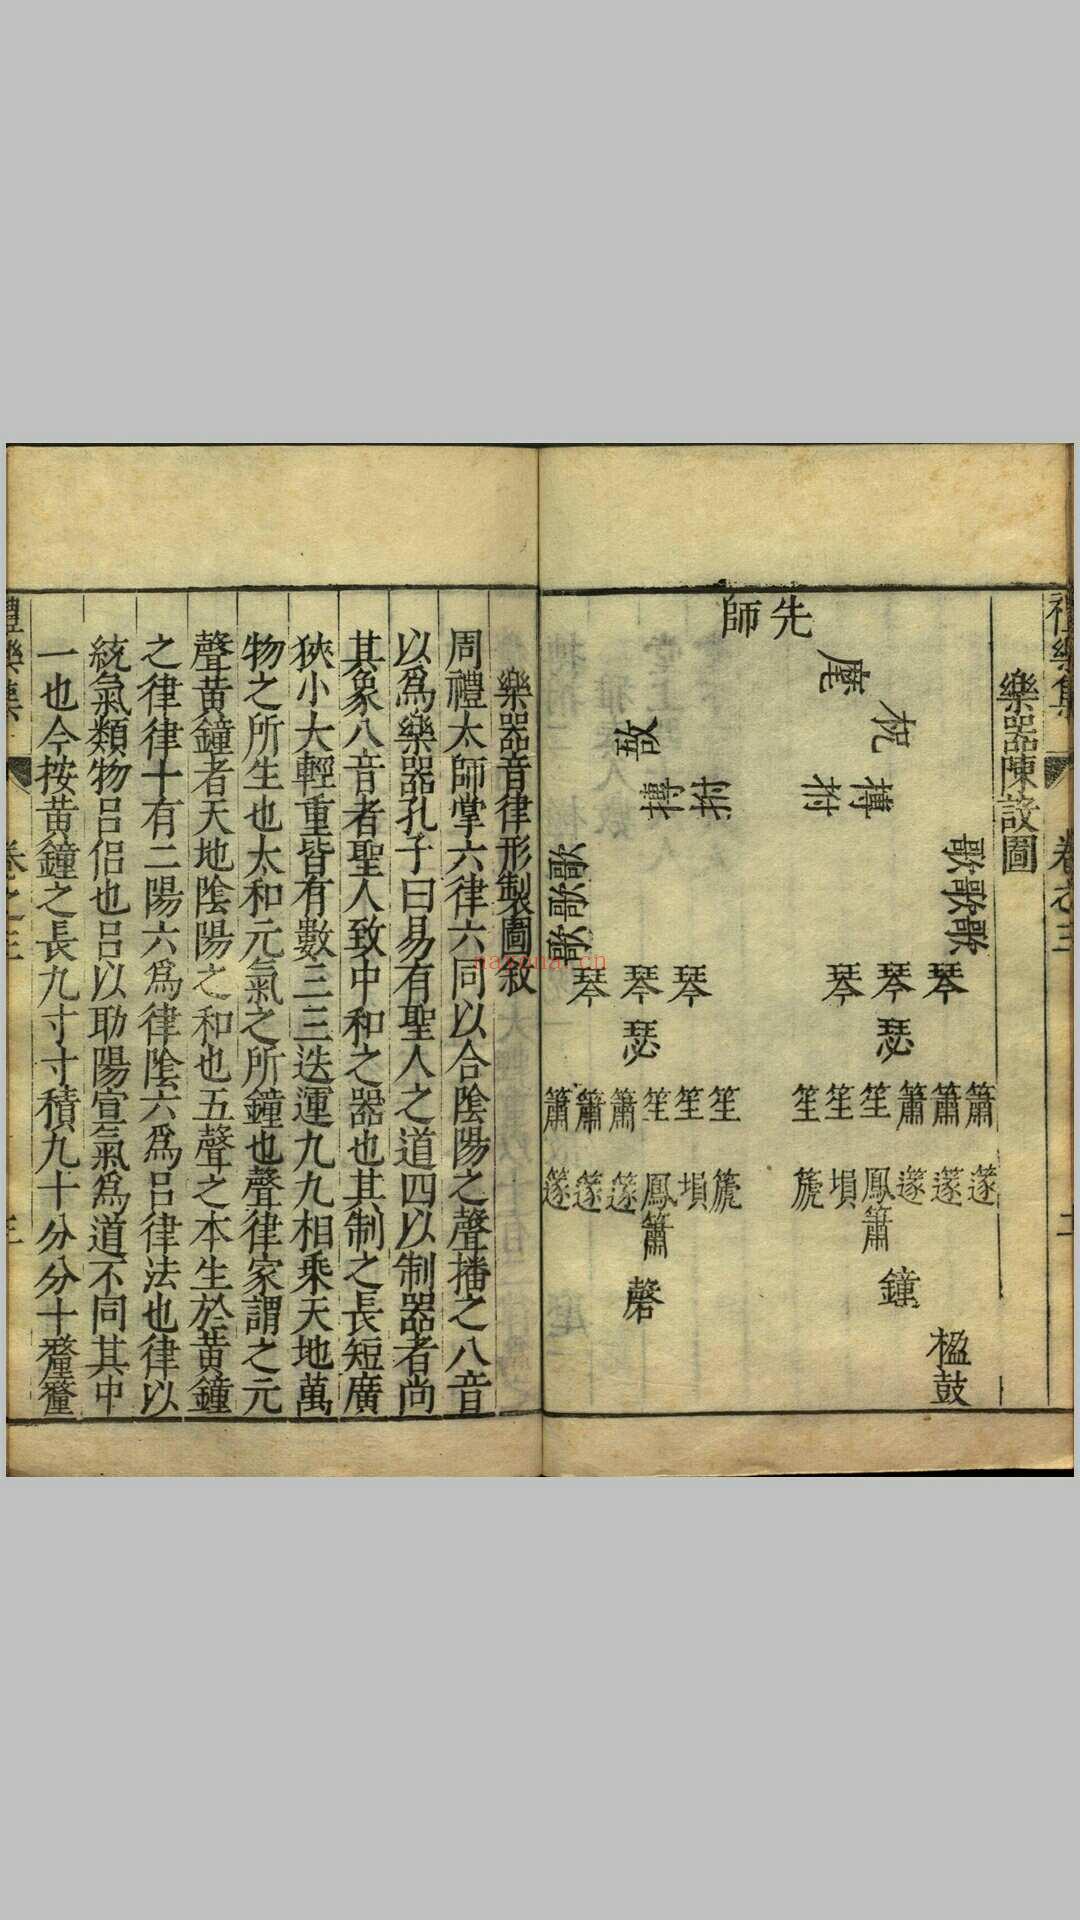 禮樂集
卷之三
二
樂器陳設圖
先師
麾
柷
敔
搏拊
搏拊
歌歌歌
歌歌歌
琴琴琴
琴琴琴
瑟
瑟
簫簫簫笙笙笙
簫簫簫笙笙笙
篴篴篴鳳簫塤篪
篴篴篴鳳簫塤篪
鐘
磬
楹鼓
樂器音律形製圖敘
周禮太師掌六律六同以合陰陽之聲播之八音
以爲樂器孔子曰易有聖人之道四以制器者尚
其象八音者聖人致中和之器也其制之長短廣
狹小大輕重皆有數三三迭運九九相乘天地萬
物之所生也太和元氣之所鐘也聲律家謂之元
聲黃鐘者天地陰陽之和也五聲之本生於黃鐘
之律律十有二陽六爲律陰六爲呂律法也律以
統氣類物呂侶也呂以助陽宣氣爲道不同其中
一也今按黃鐘之長九寸寸積九十分分十釐釐
禮樂集
卷之三
三
nayona.cn